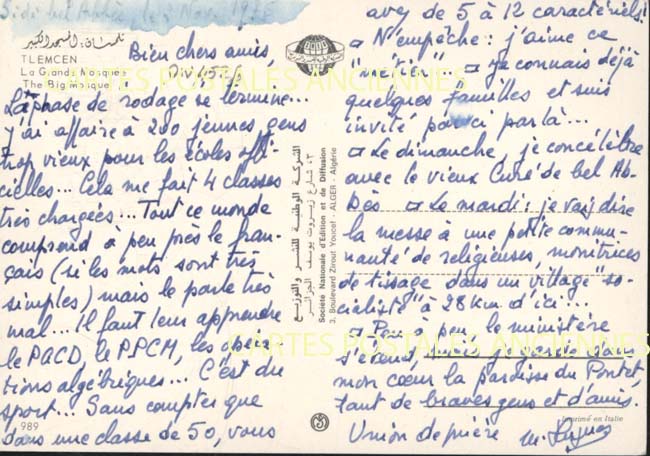 Sidi bel Abbès, le 2 Nov. 1976
تلمسان: المسجد الكبير
TLEMCEN
La Grande Mosquée
The Big Mosque
Bien chers amis,
La phase de rodage se termine...
j'ai affaire à 200 jeunes gens
trop vieux pour les écoles offi-
cielles... Cela me fait 4 classes
très chargées... Tout ce monde
comprend à peu près le fran-
çais (si les mots sont très
simples) mais le parle très
mal... Il faut leur apprendre
le PGCD, le PPCM, les opéra-
tions algébriques... C'est du
sport... Sans compter que
dans une classe de 50, vous
989
الشركة الوطنية للنشر والتوزيع
3، شارع زيروت يوسف الجزائر
Société Nationale d'Edition et de Diffusion
3, Boulevard Zirout Youcef ALGER - Algérie
avez de 5 à 12 caractériels!
N'empêche: j'aime ce
"métier" Je connais déjà
quelques familles et suis
invité par ci par là...
Le dimanche, je concélèbre
avec le vieux Curé de bel Ab-
bès Le mardi: je vais dire
la messe à une petite commu-
nauté de religieuses, monitrices
de tissage dans un village "so-
cialiste" à 28 km d'ici...
Peu à peu, le ministère
s'étend, mais je garde dans
mon cœur la paroisse du Pontet,
tant de braves gens et d'amis.
Union de prière
Imprimé en Italie
CARTES POSTALES ANCIENNES
CARTES POSTALES ANCIENNES